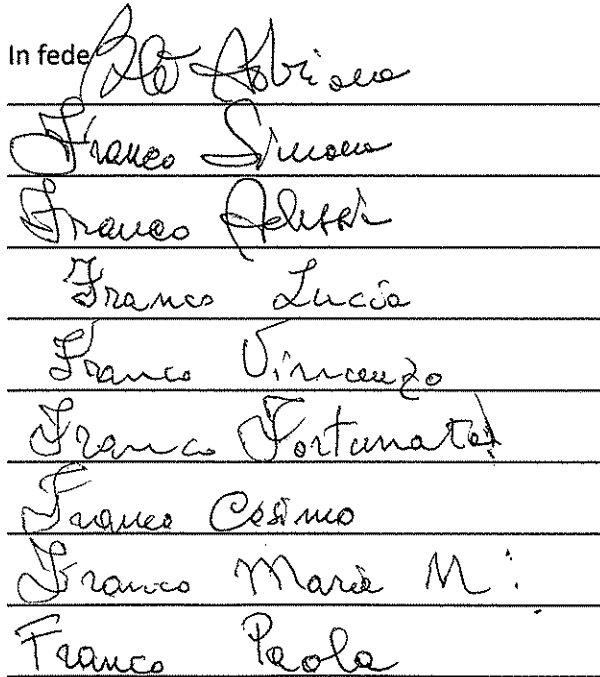 In fede Adriana
Franco Simona
Franco Alessia
Franco Lucia
Franco Vincenzo
Franco Fortunata
Franco Cosimo
Franco Maria M.
Franco Paola